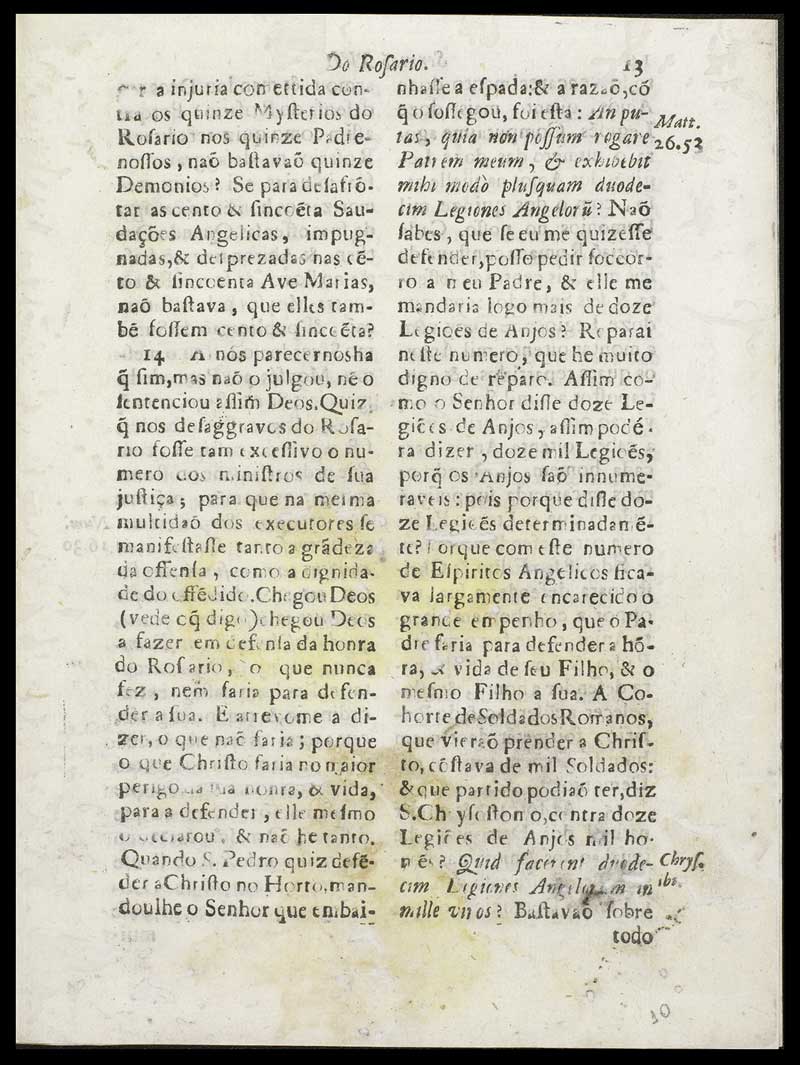 Do Roſario. 13
a injuria comettida con-
tra os quinze Myſterios do
Roſario nos quinze Padre-
noſſos, naõ baſtavaõ quinze
Demonios? Se para deſafrõ-
tar as cento & ſincoẽta Sau-
dações Angelicas, impug-
nadas, & deſprezadas nas cẽ-
to & ſincoenta Ave Marias,
naõ baſtava, que elles tam-
bẽ foſſem cento & ſincoẽta?
14 A nós parecernosha
q̃ ſim, mas naõ o julgou, nẽ o
ſentenciou aſſim Deos. Quiz
q̃ nos deſaggravos do Roſa-
rio foſſe tam exceſſivo o nu-
mero dos miniſtros de ſua
juſtiça; para que na meſma
multidaõ dos executores ſe
manifeſtaſſe tanto a grãdeza
da offenſa, como a dignida-
de do offẽdido. Chegou Deos
(vede o q̃ digo) chegou Deos
a fazer em defenſa da honra
do Roſario, o que nunca
fez, nem faria para defen-
der a ſua. E atrevome a di-
zer, o que naõ faria; porque
o que Chriſto faria no maior
perigo da ſua honra, & vida,
para a defender, elle meſmo
o declarou, & naõ he tanto.
Quando S. Pedro quiz defẽ-
der a Chriſto no Horto, man-
doulhe o Senhor que embai-
nhaſſe a eſpada: & a razaõ, cõ
q̃ o ſoſſegou, foi eſta: An pu-
tas, quia non poſſum rogare
Patrem meum, & exhibebit
mihi modò pluſquam duode-
cim Legiones Angelorũ? Naõ
ſabes, que ſe eu me quizeſſe
defender, poſſo pedir ſoccor-
ro a meu Padre, & elle me
mandaria logo mais de doze
Legioẽs de Anjos? Reparai
neſte numero, que he muito
digno de reparo. Aſſim co-
mo o Senhor diſſe doze Le-
gioẽs de Anjos, aſſim podé-
ra dizer, doze mil Legioẽs,
porq̃ os Anjos ſaõ innume-
raveis: pois porque diſſe do-
ze Legioẽs determinadamẽ-
te? Porque com eſte numero
de Eſpiritos Angelicos fica-
va largamente encarecido o
grande empenho, que o Pa-
dre faria para defender a hõ-
ra, & vida de ſeu Filho, & o
meſmo Filho a ſua. A Co-
horte de Soldados Romanos,
que vieraõ prender a Chriſ-
to, cõſtava de mil Soldados:
& que partido podiaõ ter, diz
S. Chryſoſtomo, contra doze
Legioẽs de Anjos mil ho-
mẽs? Quid facerent duode-
cim Legiones Angelorum in
mille viros? Baſtavaõ ſobre
todo
Matt.
26.53
Chryſ.
ibi.
10